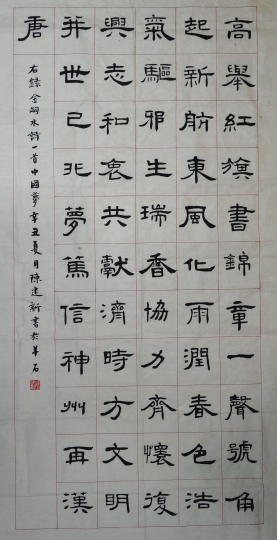 高舉紅旗書錦章一聲號角
起新舫東風化雨潤春色浩
氣驅邪生瑞香協力齊懷復
興志和衷共獻濟時方文明
并世已非夢篤信神州再漢
唐
右錄金水詩一首中國夢辛丑夏月陳建新書於華石